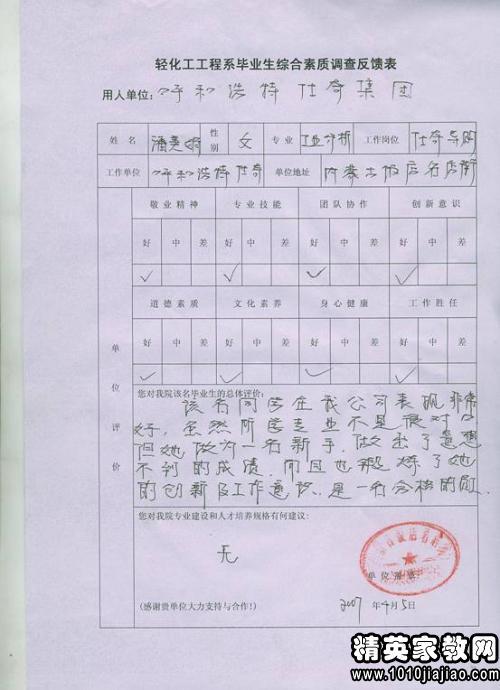 轻化工工程系毕业生综合素质调查反馈表
用人单位：呼和浩特仕奇集团
姓名 潘美娟 性别 女 专业 工业分析 工作岗位 仕奇导购
工作单位 呼和浩特仕奇 单位地址 内蒙古饭店名店街
敬业精神 专业技能 团队协作 创新意识
好 中 差 好 中 差 好 中 差 好 中 差
✓ ✓ ✓ ✓
道德素质 文化素养 身心健康 工作胜任
好 中 差 好 中 差 好 中 差 好 中 差
✓ ✓ ✓ ✓
单位评价
您对我院该名毕业生的总体评价：
该名同学在我公司表现非常
好，虽然所学专业不是很对口
但她做为一名新手，做出了意想
不到的成绩，而且也锻炼了她
的创新及工作意识，是一名合格的
您对我院专业建设和人才培养规格有何建议：
无
单位
(感谢贵单位大力支持与合作!) 2007 年4月5日
精英家教网
www.1010jiajiao.com